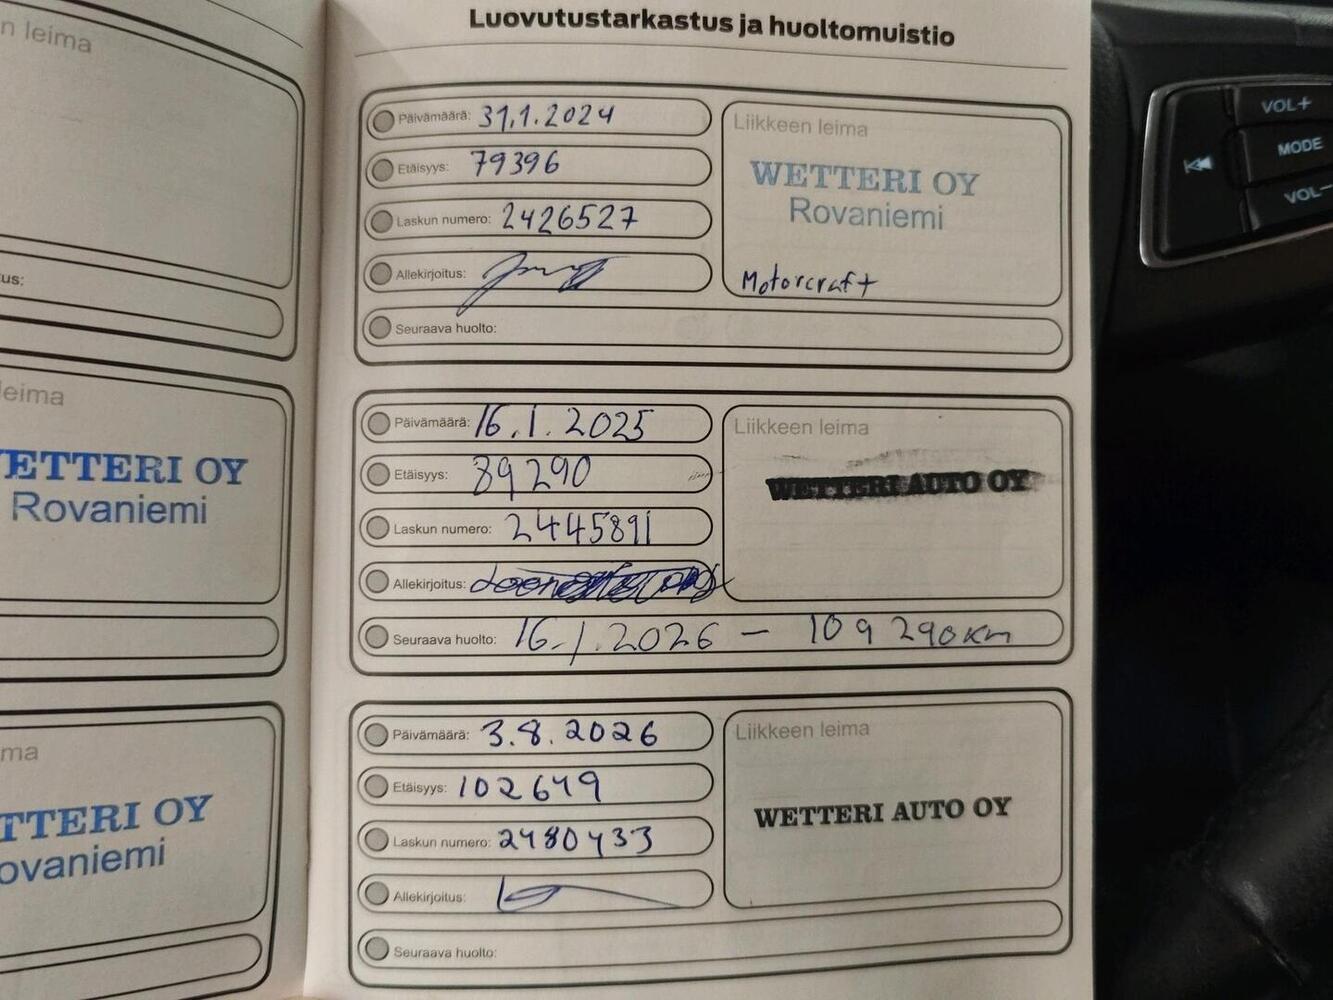 n leima
us:
leima
WETTERI OY
Rovaniemi
ma
TTERI OY
ovaniemi
Luovutustarkastus ja huoltomuistio
Päivämäärä: 31.1.2024
Etäisyys: 79396
Laskun numero: 2426527
Allekirjoitus:
Seuraava huolto:
Liikkeen leima
WETTERI OY
Rovaniemi
Motorcraft
Päivämäärä: 16.1.2025
Etäisyys: 89290
Laskun numero: 2445891
Allekirjoitus:
Seuraava huolto: 16.1.2026 – 109 290km
Liikkeen leima
WETTERI AUTO OY
Päivämäärä: 3.8.2026
Etäisyys: 102649
Laskun numero: 2480433
Allekirjoitus:
Seuraava huolto:
Liikkeen leima
WETTERI AUTO OY
VOL+
MODE
VOL–